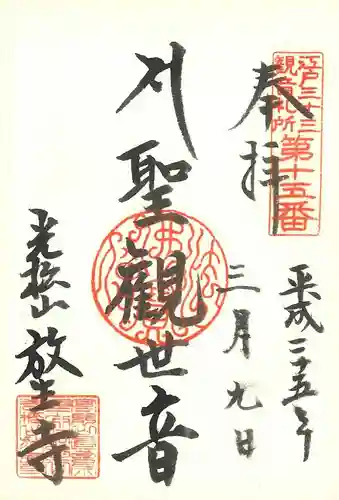 江戸三十三
観音札所
第十五番
奉拝
平成二十五年
三月九日
聖観世音
光松山
放生寺